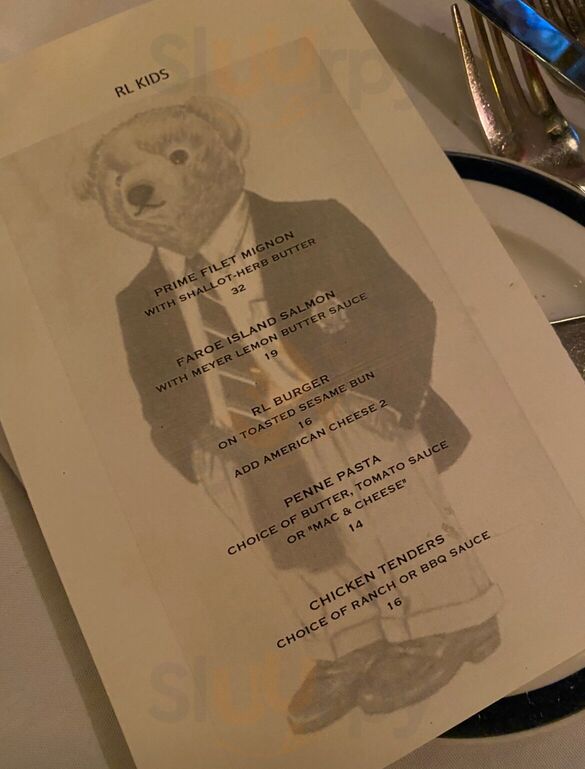 RL KIDS
PRIME FILET MIGNON
WITH SHALLOT-HERB BUTTER
32
FAROE ISLAND SALMON
WITH MEYER LEMON BUTTER SAUCE
19
RL BURGER
ON TOASTED SESAME BUN
16
ADD AMERICAN CHEESE 2
PENNE PASTA
CHOICE OF BUTTER, TOMATO SAUCE
OR "MAC & CHEESE"
14
CHICKEN TENDERS
CHOICE OF RANCH OR BBQ SAUCE
16
Sluurpy
sluurpy